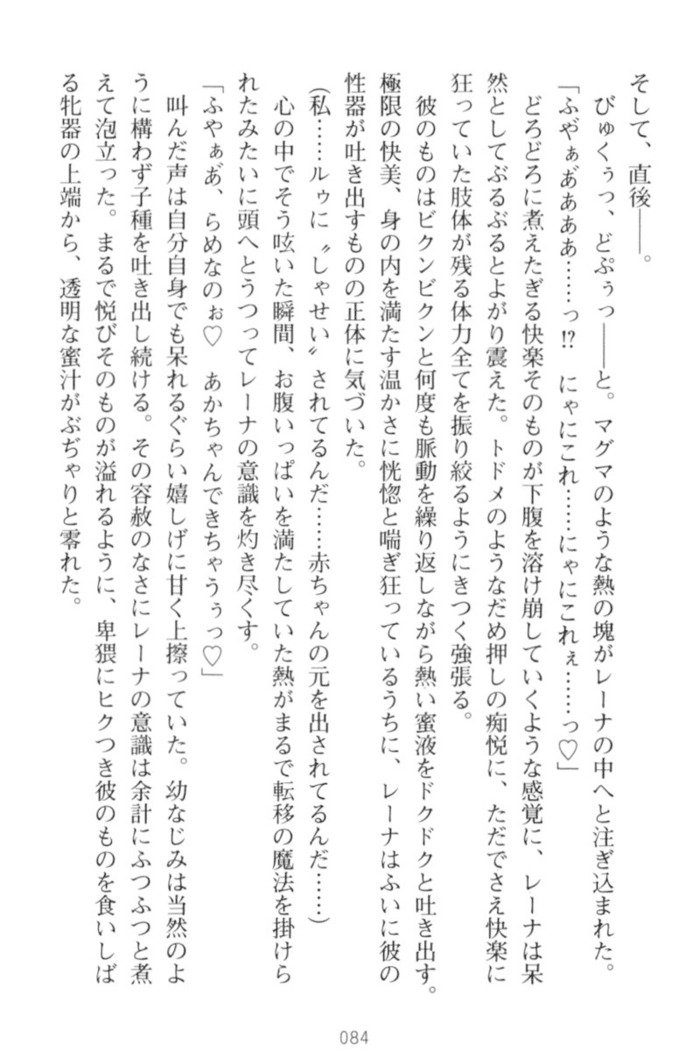 そして、直後――。
びゅくぅっ、どぷぅっ――と。マグマのような熱の塊がレーナの中へと注ぎ込まれた。
「ふやぁあ゙ああぁ……っ!?　にゃにこれ……にゃにこれぇ……っ♡」
どろどろに煮えたぎる快楽そのものが下腹を溶け崩していくような感覚に、レーナは呆
然としてぶるぶるとよがり震えた。トドメのようなだめ押しの痴悦に、ただでさえ快楽に
狂っていた肢体が残る体力全てを振り絞るようにきつく強張る。
彼のものはビクンビクンと何度も脈動を繰り返しながら熱い蜜液をドクドクと吐き出す。
極限の快美、身の内を満たす温かさに恍惚と喘ぎ狂っているうちに、レーナはふいに彼の
性器が吐き出すものの正体に気づいた。
（私……ルゥに〝しゃせい〟されてるんだ……赤ちゃんの元を出されてるんだ……）
心の中でそう呟いた瞬間、お腹いっぱいを満たしていた熱がまるで転移の魔法を掛けら
れたみたいに頭へとうつってレーナの意識を灼き尽くす。
「ふやぁあ゙、らめなのぉ♡　あかちゃんできちゃうぅっ♡」
叫んだ声は自分自身でも呆れるぐらい嬉しげに甘く上擦っていた。幼なじみは当然のよ
うに構わず子種を吐き出し続ける。その容赦のなさにレーナの意識は余計にふつふつと煮
えて泡立った。まるで悦びそのものが溢れるように、卑猥にヒクつき彼のものを食いしば
る牝器の上端から、透明な蜜汁がぶぢゃりと零れた。
084